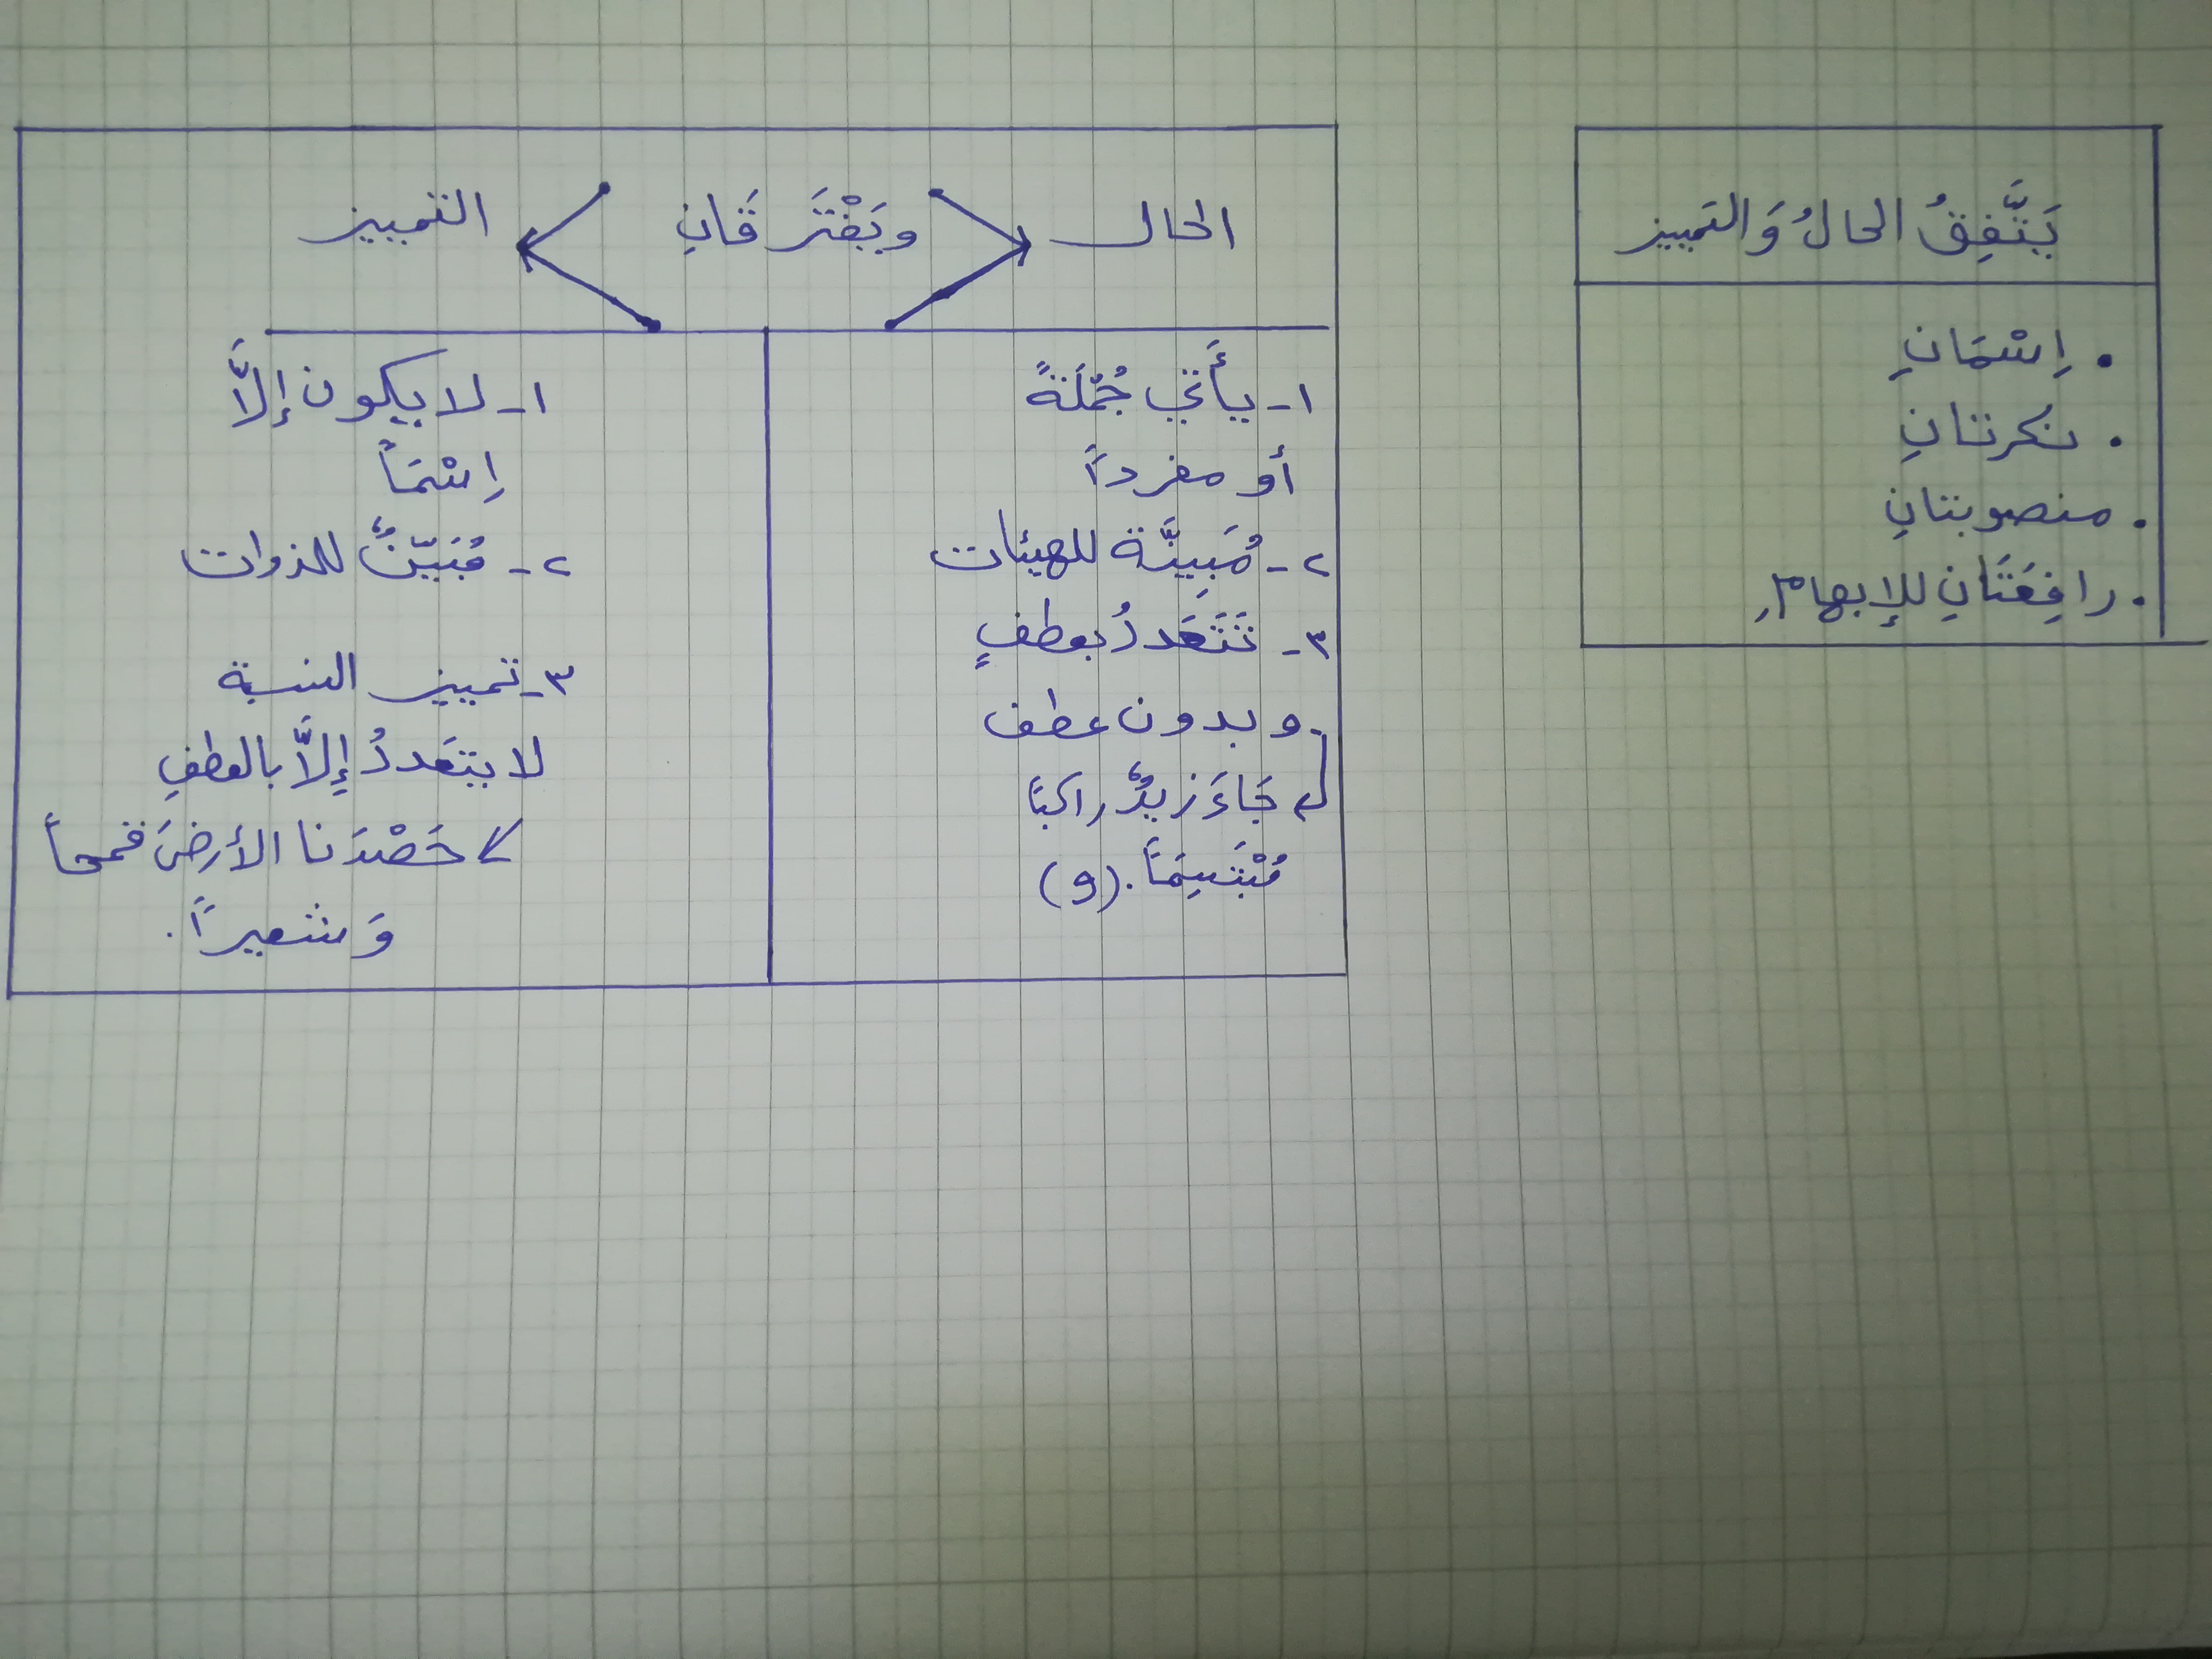 يَتَّفِقُ الحالُ وَالتمييز
. اِسْمَانِ
. نكرتانِ
. منصوبتانِ
. رافِعَتَانِ للإبهامِ
الحال ويَفْتَرَقَانِ التمييز
١- يأَتي جُمْلَةً
أو مفرداً
٢- مُبَيِنَّة للهيئات
٣- تَتَعَددُ بعطفٍ
وبدون عطف
جَاءَ زيدٌ راكبًا
مُبْتَسِمَاً. (و)
١- لا يكون إلاَّ
اِسْمَاً
٢- مُبَيّنٌ للذوات
٣- تمييز النسبة
لا يتعَددُ إِلاَّ بالعطفِ
حَصْدَنا الأرضَ قمحاً
وَشعيراً.